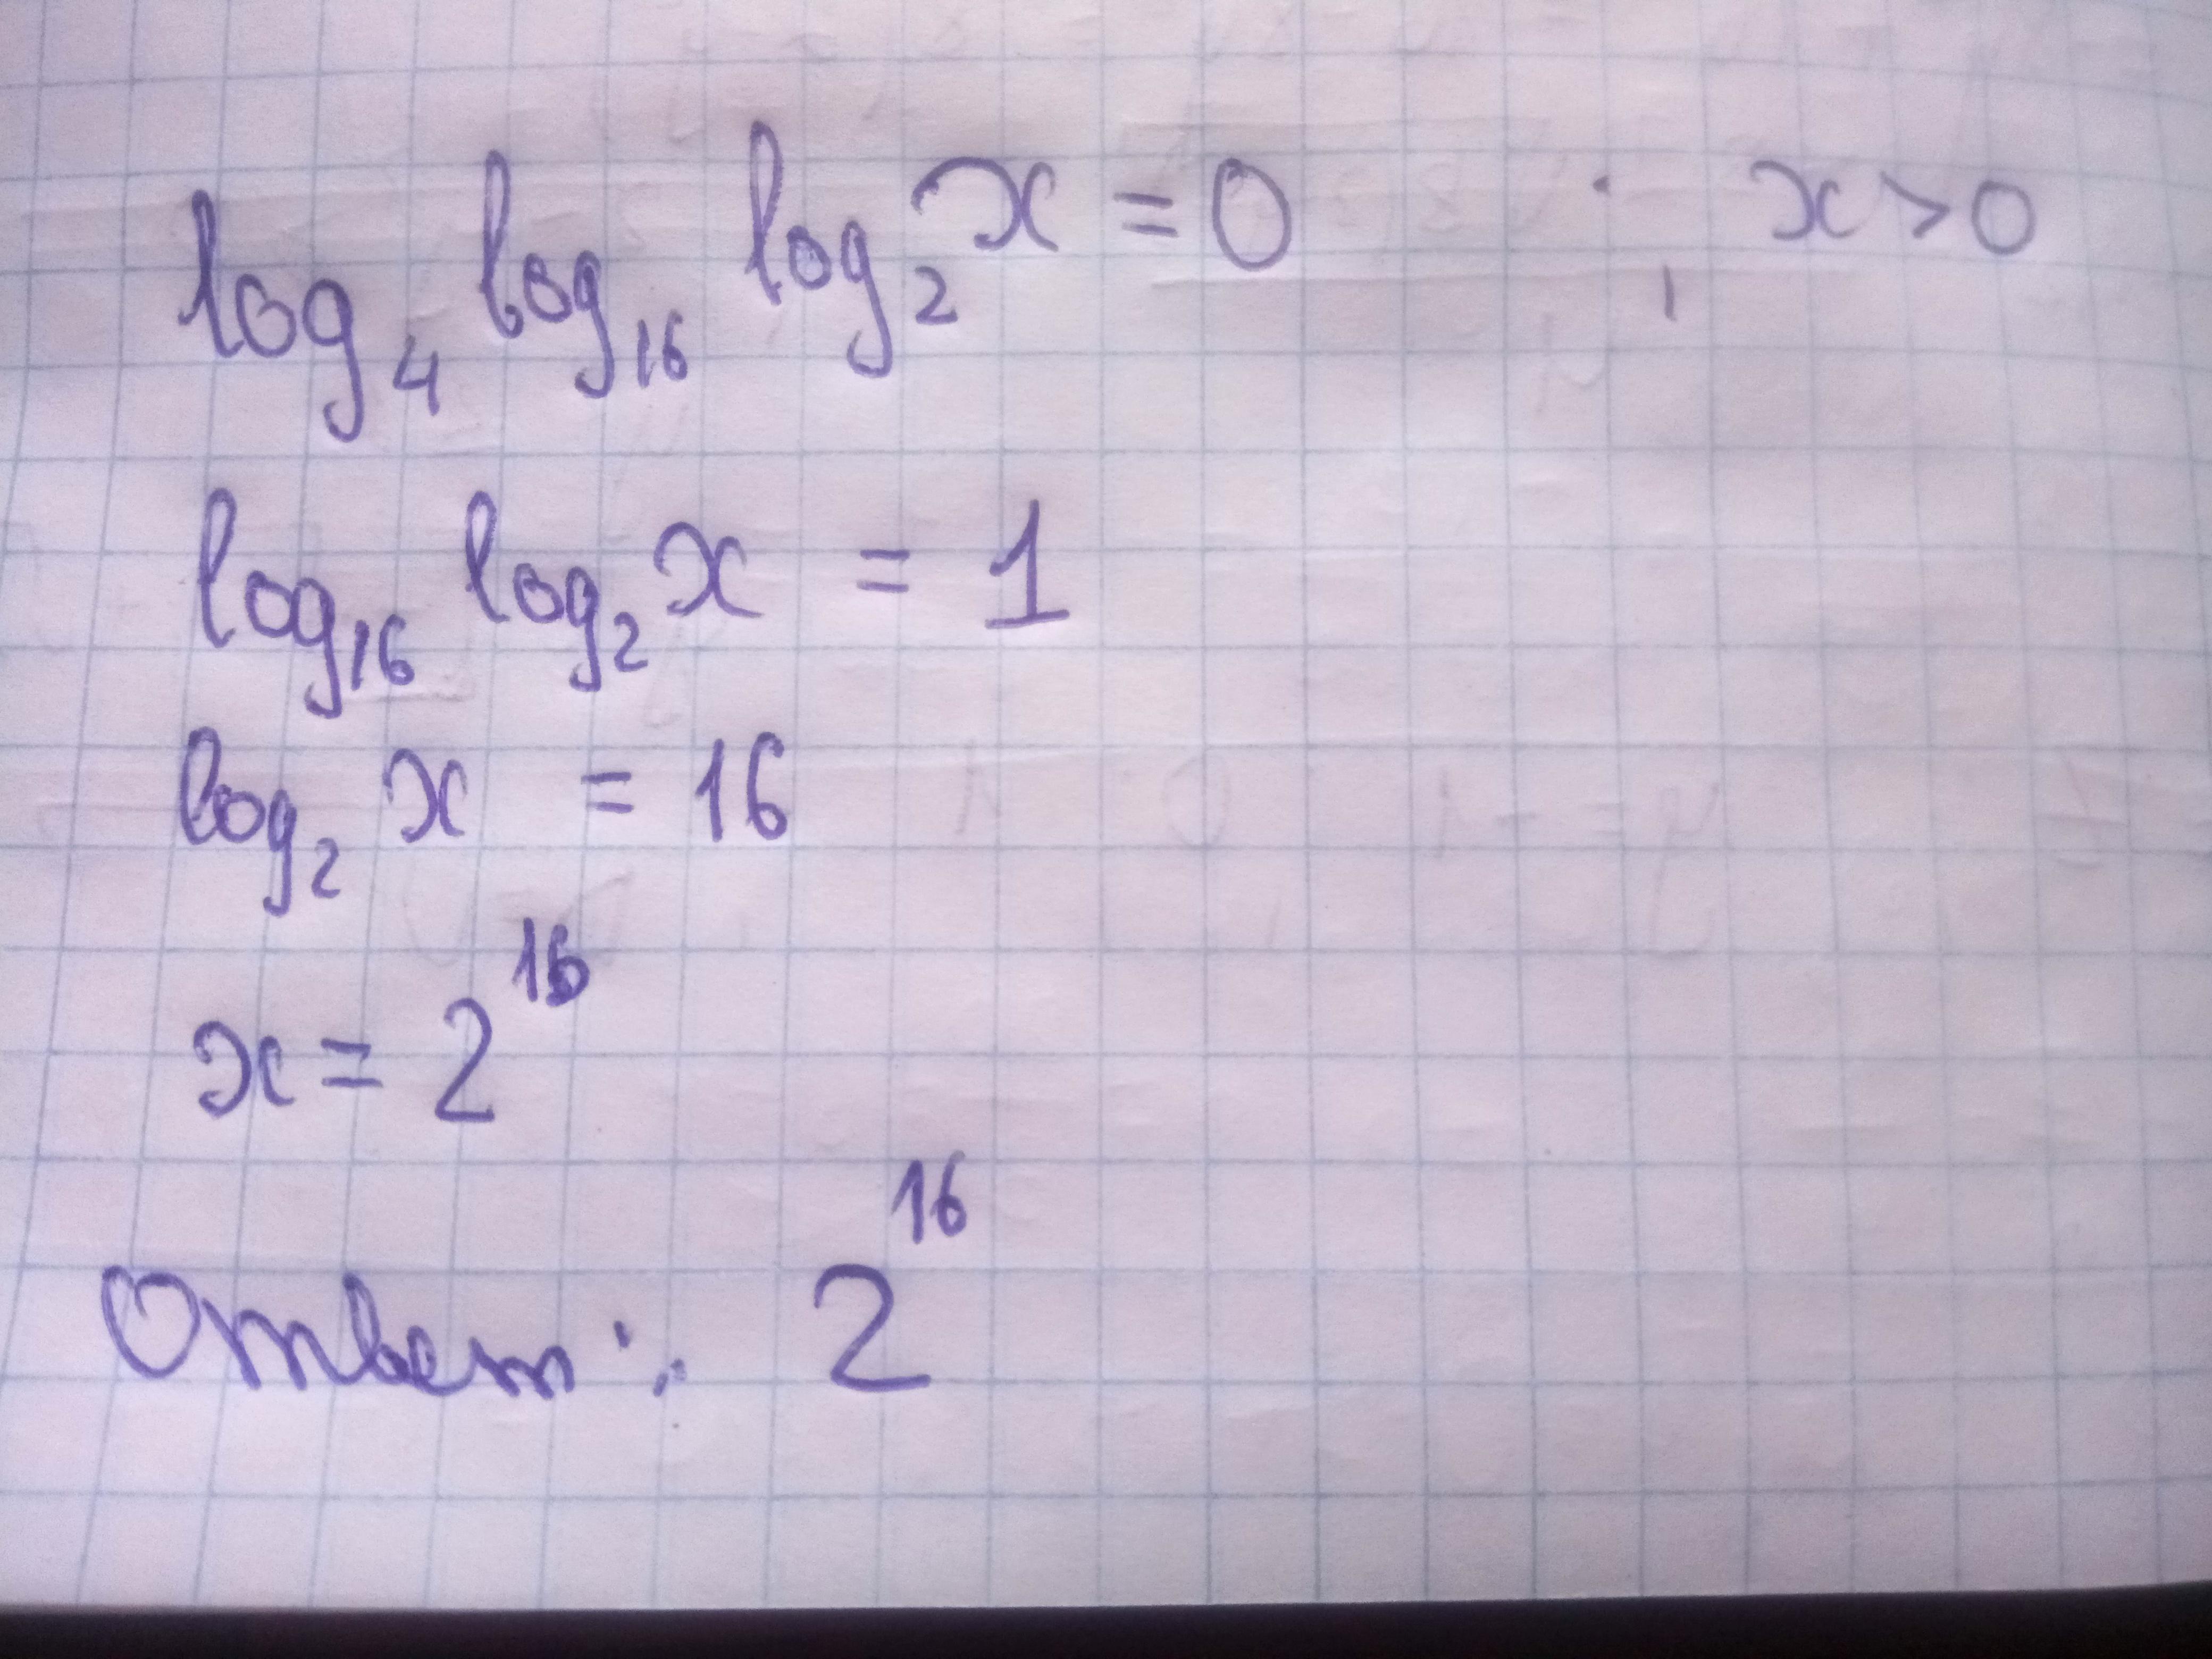 log₄ log₁₆ log₂ x = 0 ; x > 0
log₁₆ log₂ x = 1
log₂ x = 16
x = 2¹⁶
Ответ: 2¹⁶